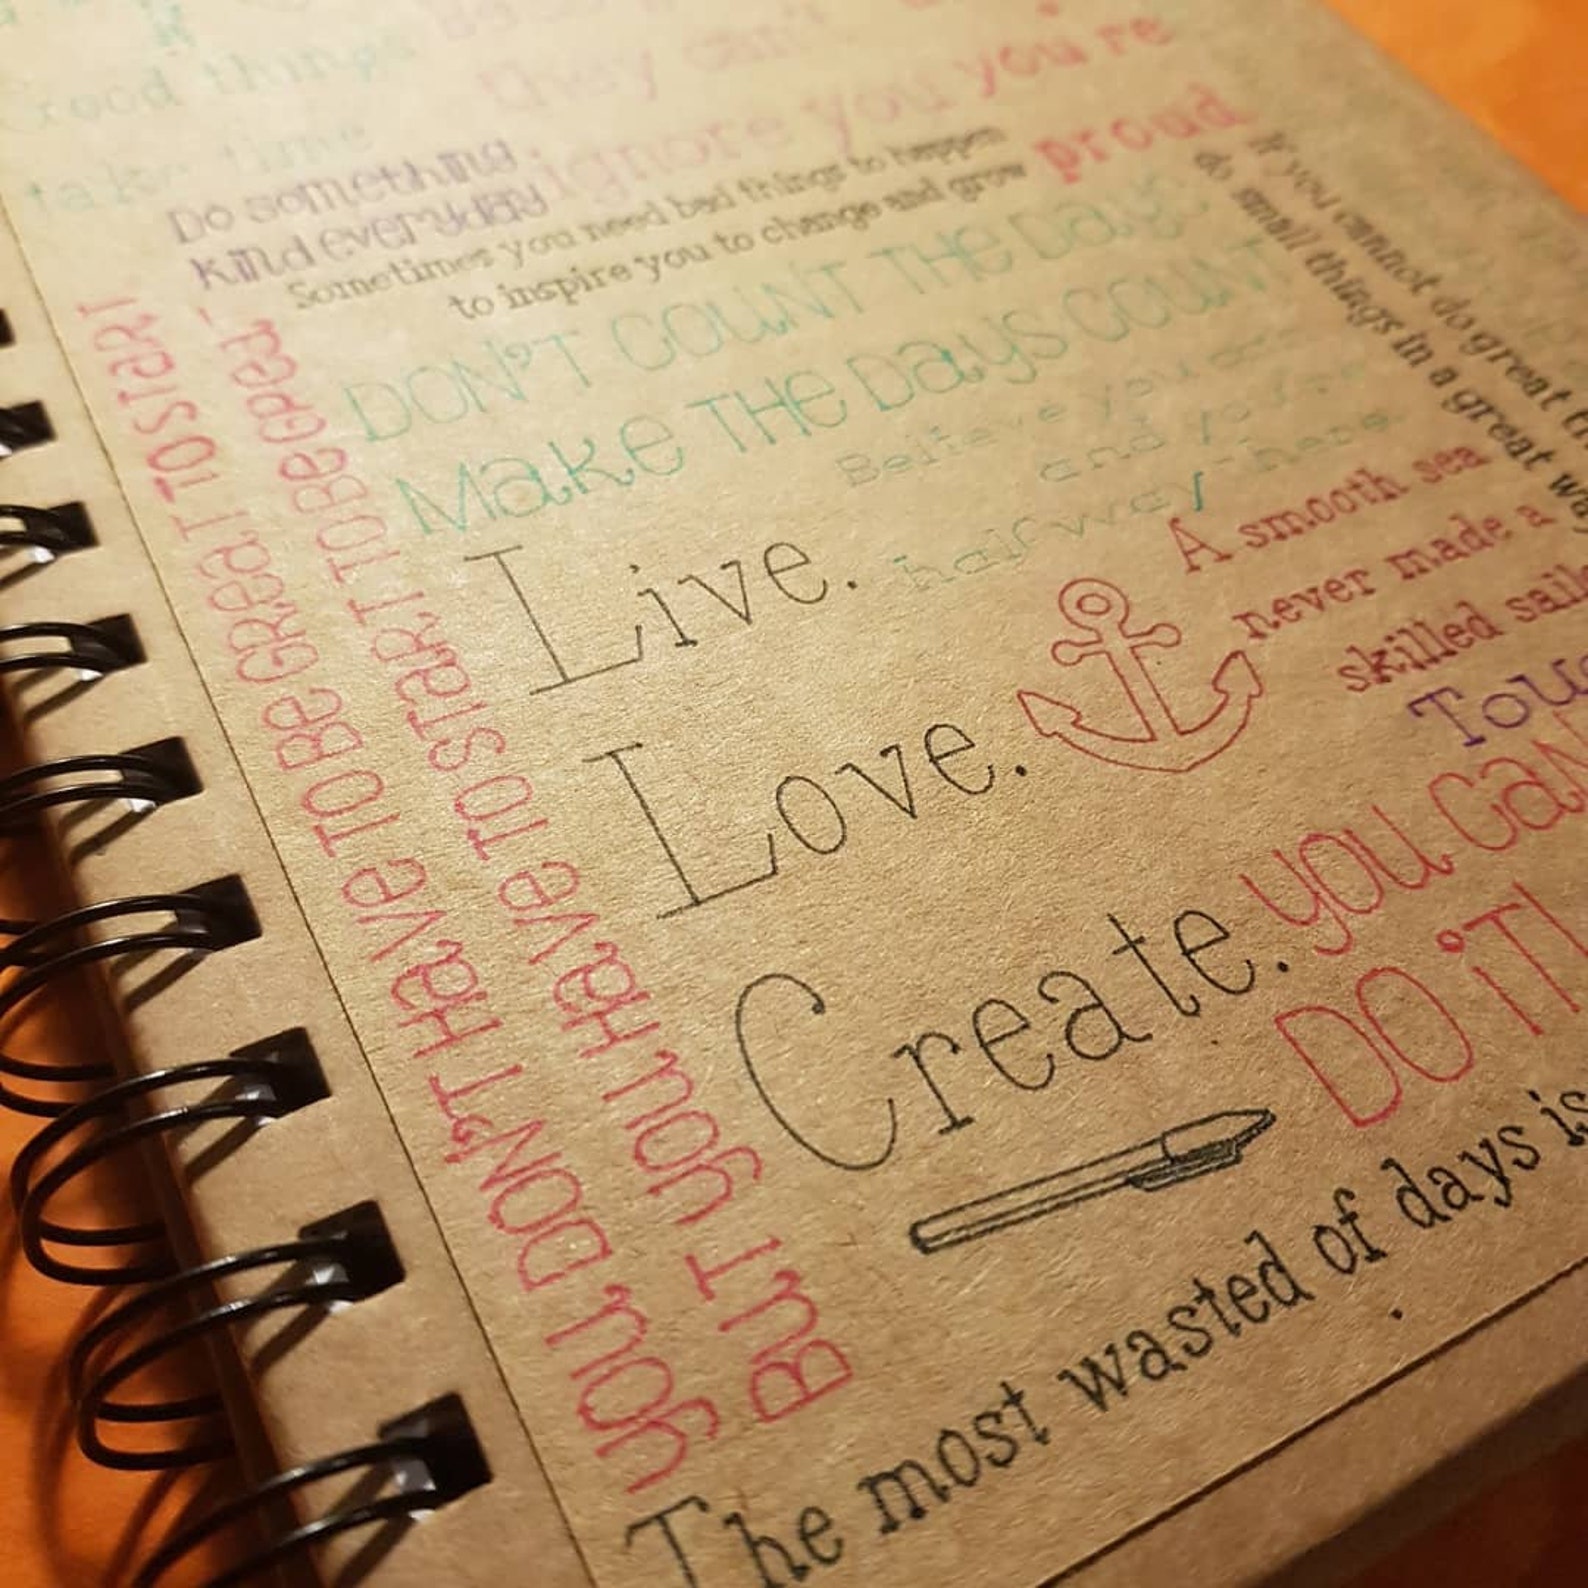 Good things
take time
they can't
ignore you you're
proud
Do something
kind everyday
Sometimes you need bad things to happen
to inspire you to change and grow
DON'T COUNT THE Days
Make THe Days COUNT
Believe you
and you're
halfway there
If you cannot do great
do small things in a great way
YOU DON'T Have TO Be GReaT TO START
BUT YOU Have TO START TO Be GReaT
Live.
Love.
Create.
A smooth sea
never made a
skilled
you CaN
DO iT!
The most wasted of days is